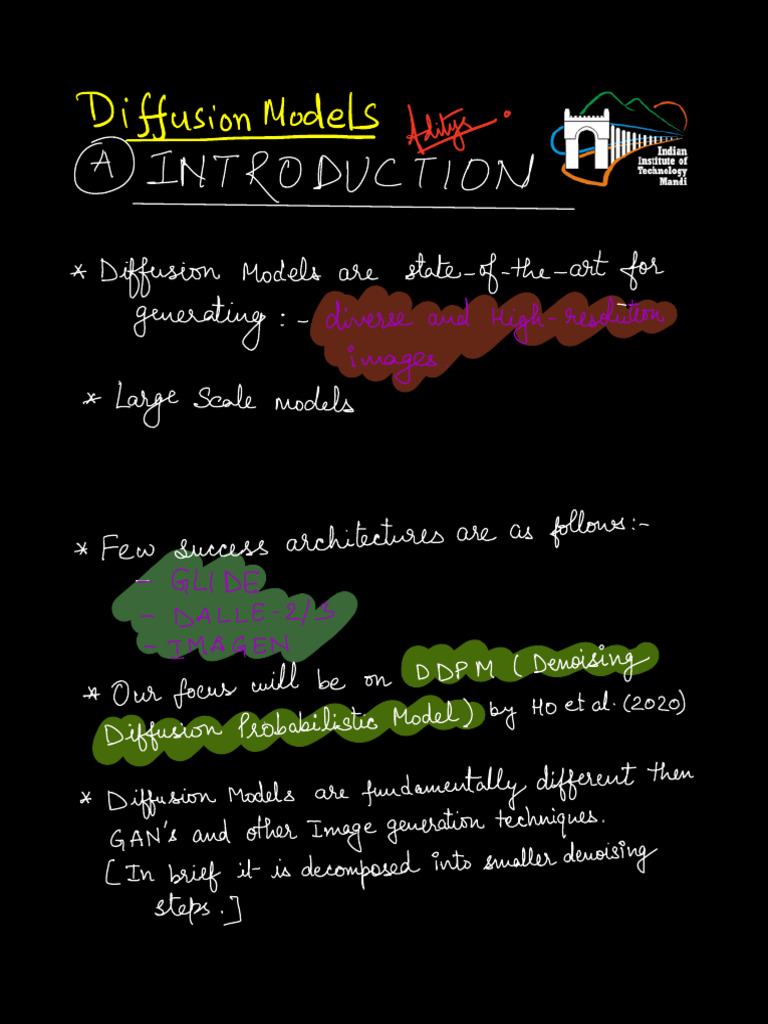 Diffusion Models
Aditya
A INTRODUCTION
Indian
Institute of
Technology
Mandi
* Diffusion Models are state-of-the-art for
generating :- diverse and High-resolution
images
* Large Scale models
* Few success architectures are as follows:-
- GLIDE
- DALLE-2/3
- IMAGEN
* Our focus will be on DDPM (Denoising
Diffusion Probabilistic Model) by Ho et al. (2020)
* Diffusion Models are fundamentally different then
GAN's and other Image generation techniques.
[In brief it is decomposed into smaller denoising
steps.]